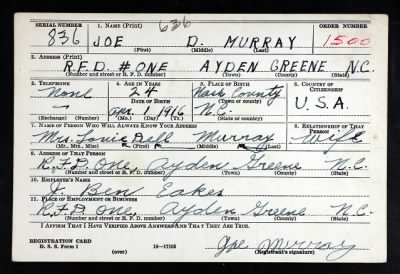 SERIAL NUMBER 1. NAME (Print) 636 ORDER NUMBER
836 JOE D. MURRAY 1500
(First) (Middle) (Last)
2. ADDRESS (Print)
R.F.D. #ONE AYDEN GREENE N.C.
(Number and street or R. F. D. number) (Town) (County) (State)
3. TELEPHONE 4. AGE IN YEARS 5. PLACE OF BIRTH 6. COUNTRY OF CITIZENSHIP
None 24 Nash County
DATE OF BIRTH (Town or county) U.S.A.
— Apr. 1, 1916 N.C.
(Exchange) (Number) (Mo.) (Day) (Yr.) (State or country)
7. NAME OF PERSON WHO WILL ALWAYS KNOW YOUR ADDRESS 8. RELATIONSHIP OF THAT PERSON
Mrs. Bell Murray Wife
(Mr., Mrs., Miss) (First) (Middle) (Last)
9. ADDRESS OF THAT PERSON
R.F.D. One, Ayden Greene N.C.
(Number and street or R. F. D. number) (Town) (County) (State)
10. EMPLOYER'S NAME
J. Ben Eakes
11. PLACE OF EMPLOYMENT OR BUSINESS
R.F.D. One, Ayden Greene N.C.
(Number and street or R. F. D. number) (Town) (County) (State)
I AFFIRM THAT I HAVE VERIFIED ABOVE ANSWERS AND THAT THEY ARE TRUE.
REGISTRATION CARD
D. S. S. Form 1 (over) 16—17105 Joe Murray
(Registrant's signature)